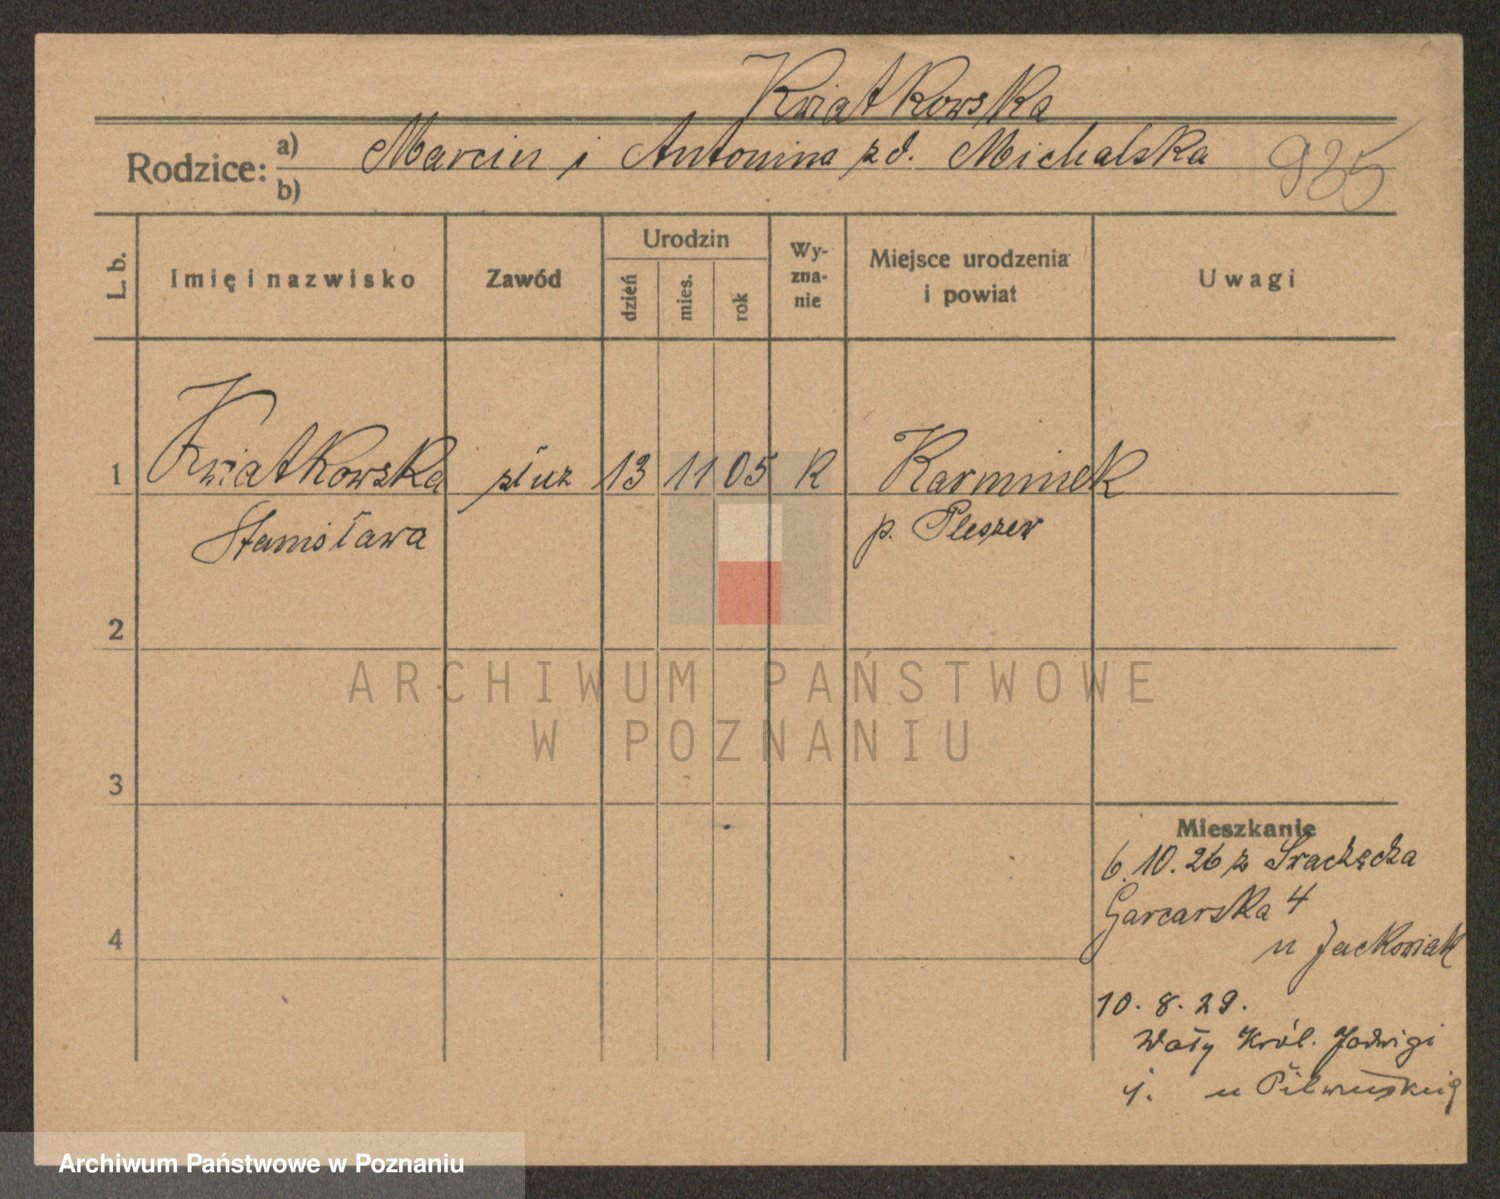 Kwiatkowska
Rodzice: a) Marcin i Antonina zd. Michalska 935
b)
L. b. Imię i nazwisko Zawód Urodzin dzień mies. rok Wyznanie Miejsce urodzenia i powiat Uwagi
1 Kwiatkowska służ 13 11 05 R Karminek
Stanisława p. Pleszew
2
ARCHIWUM PAŃSTWOWE
W POZNANIU
3
Mieszkanie
6.10.26 z
Garcarska 4
4
u Jackowiak
10.8.29.
Wały Król. Jadwigi
u
Archiwum Państwowe w Poznaniu